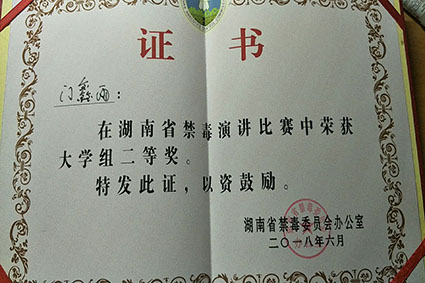 证书
门鑫雨：
在湖南省禁毒演讲比赛中荣获
大学组二等奖。
特发此证，以资鼓励。
湖南省禁毒委员会办公室
二〇一八年六月